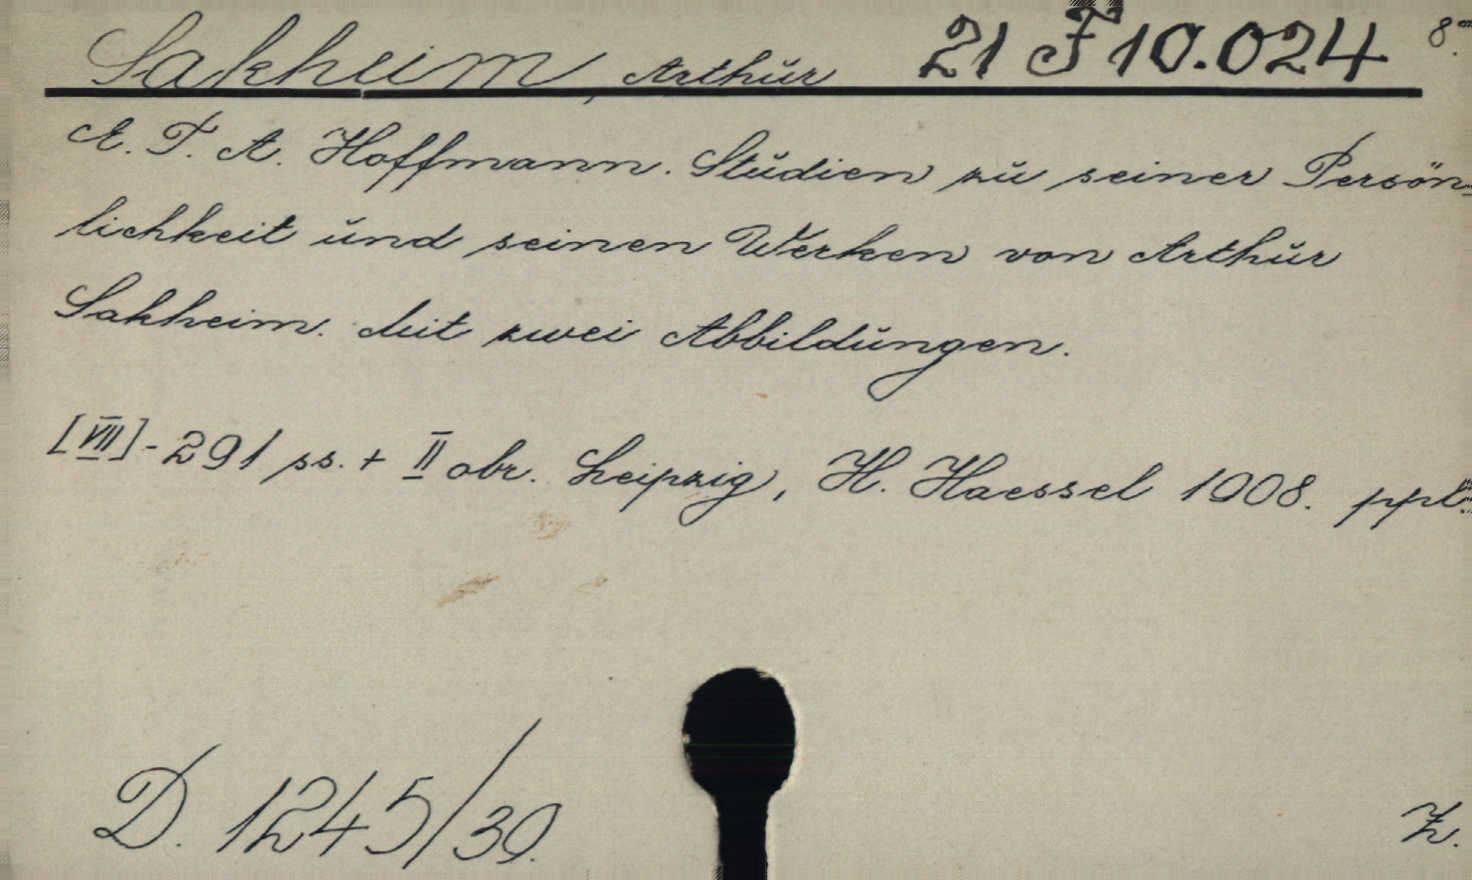 Sakheim, Arthur 21 F 10.024 8°.
E. T. A. Hoffmann. Studien zu seiner Persön-
lichkeit und seinen Werken von Arthur
Sakheim. Mit zwei Abbildungen.
[VII]-291 ss. + II obr. Leipzig, H. Haessel 1908. ppl.
D. 1245/39.
Ž.